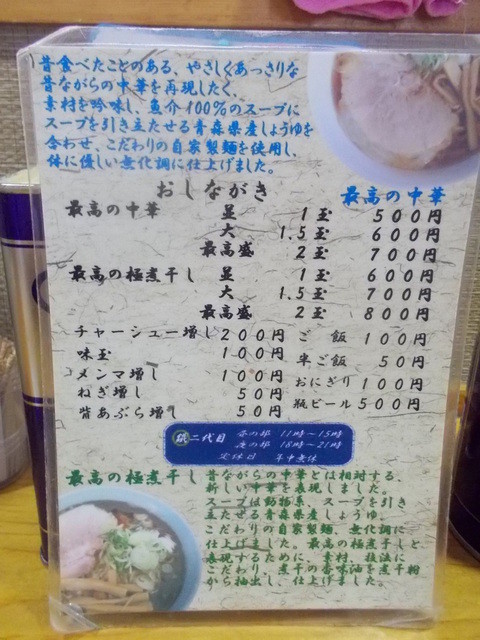 昔食べたことのある、やさしくあっさりな
昔ながらの中華を再現したく、
素材を吟味し、魚介100%のスープに
スープを引き立たせる青森県産しょうゆを
合わせ、こだわりの自家製麺を使用し、
体に優しい無化調に仕上げました。
おしながき 最高の中華
最高の中華 並 1玉 500円
大 1.5玉 600円
最高盛 2玉 700円
最高の極煮干し 並 1玉 600円
大 1.5玉 700円
最高盛 2玉 800円
チャーシュー増し 200円 ご飯 100円
味玉 100円 半ご飯 50円
メンマ増し 100円 おにぎり 100円
ねぎ増し 50円 瓶ビール 500円
背あぶら増し 50円
二代目 昼の部 11時〜15時
夜の部 18時〜21時
定休日 年中無休
最高の極煮干し 昔ながらの中華とは相対する、
新しい中華を表現しました。
スープは動物系、スープを引き
立たせる青森県産しょうゆ、
こだわりの自家製麺、無化調に
仕上げました。最高の極煮干しと
表現するために、素材、技法に
こだわり、煮干の香味油を煮干粉
から抽出し、仕上げました。